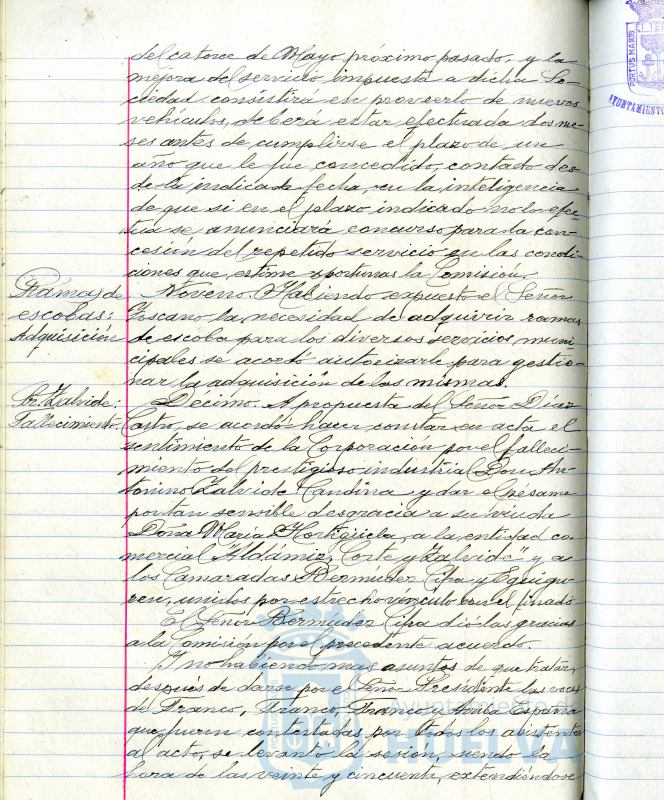 del catorce de Mayo próximo pasado, y la
mejora del servicio impuesta a dicha So-
ciedad consistirá en proveerlo de nuevos
vehículos, deberá estar efectuada dos me-
ses antes de cumplirse el plazo de un
año que le fue concedido, contado des-
de la indicada fecha, en la inteligencia
de que si en el plazo indicado no lo efec-
túa se anunciará concurso para la con-
cesión del repetido servicio en las condi-
ciones que estime oportunas la Comisión.
Ramas de
escobas:
Adquisición
Noveno. Habiendo expuesto el Señor
Toscano la necesidad de adquirir ramas
de escoba para los diversos servicios muni-
cipales se acordó autorizarle para gestio-
nar la adquisición de las mismas.
Sr. Zalvide:
Fallecimiento.
Décimo. A propuesta del Señor Díaz
Castro, se acordó hacer constar en acta el
sentimiento de la Corporación por el falleci-
miento del prestigioso industrial Don An-
tonino Zalvide Candina y dar el pésame
por tan sensible desgracia a su viuda
Doña María Hortigüela, a la entidad co-
mercial "Aldamiz, Corte y Zalvide" y a
los Camaradas Bermudez Cifa y Eguigu-
ren, unidos por estrecho vínculo con el finado
El Señor Bermudez Cifa dió las gracias
a la Comisión por el precedente acuerdo.
Y no habiendo mas asuntos de que tratar,
después de darse por el Señor Presidente las voces
de Franco, Franco, Franco y Arriba España
que fueron contestadas por todos los asistentes
al acto, se levantó la sesión, siendo la
hora de las veinte y cincuenta, extendiéndose
PORTUS MARIS
AYUNTAMIENTO
Ayuntamiento
HUELVA